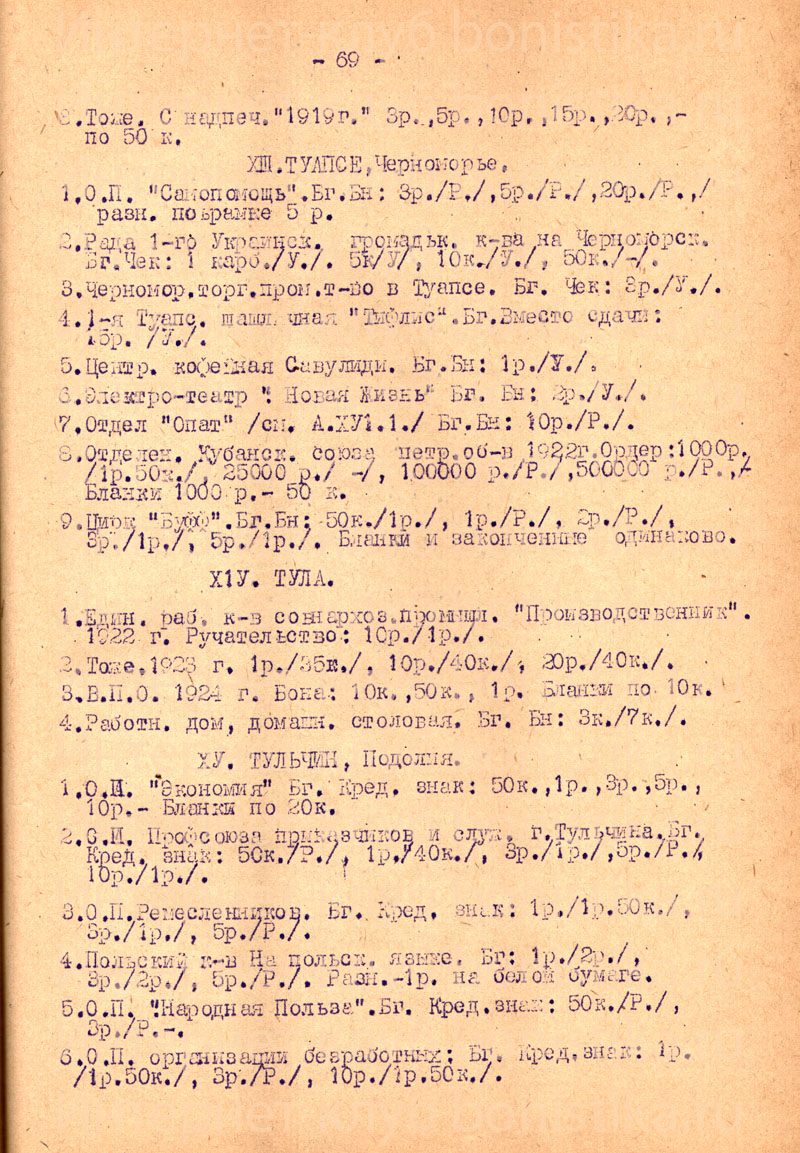 Интернет-клуб bonistika.ru
- 69 -
.Тоже. С надпеч."1919г." 3р.,5р.,10р.,15р.,20р.,-
по 50 к.
ХШ.ТУАПСЕ,Черноморье.
1.О.П. "Самопомощь".Бг.Бн: 3р./Р./,5р./Р./,20р./Р./
разн. по рамке 5 р.
2.Рада 1-го Украинск. громадьк. к-ва на Черноморск.
Бг.Чек: 1 карб./У./. 5к/У/, 10к./У./, 50к./-/.
3.Черномор.торг.пром.т-во в Туапсе. Бг. Чек: 3р./У./.
4.1-я Туапс. шашлычная "Тифлис".Бг.Вместо сдачи:
15р. /У./.
5.Центр. кофейная Савулиди. Бг.Бн: 1р./У./.
6.Электро-театр " Новая Жизнь" Бг. Бн: 2р./У./.
7.Отдел "Опат" /см. А.ХУ1.1./ Бг.Бн: 10р./Р./.
8.Отделен. Кубанск. союза петр.об-в 1922г.Ордер:1000р.
/1р.50к./, 25000 р./ -/, 100000 р./Р./,500000 р./Р.,/-
Бланки 1000 р.- 50 к.
9.Цирк "Буфф".Бг.Бн: 50к./1р./, 1р./Р./, 2р./Р./,
3р./1р./, 5р./1р./. Бланки и законченные одинаково.
Х1У. ТУЛА.
1.Един. раб. к-в совнархоз.промышл. "Производственник".
1922 г. Ручательство: 10р./1р./.
2.Тоже.1923 г. 1р./35к./, 10р./40к./, 20р./40к./.
3.В.П.О. 1924 г. Бона: 10к.,50к., 1р. Бланки по 10к.
4.Работн. дом, домашн. столовая. Бг. Бн: 3к./7к./.
ХУ. ТУЛЬЧИН, Подолия.
1.О.П. "Экономия" Бг. Кред. знак: 50к.,1р.,3р.,5р.,
10р.- Бланки по 20к.
2.О.П. Профсоюза приказчиков и служ. г.Тульчина.Бг.
Кред. знак: 50к./Р./, 1р./40к./, 3р./1р./,5р./Р./,
10р./1р./.
3.О.П.Ремесленников. Бг. Кред. знак: 1р./1р.50к./,
3р./1р./, 5р./Р./.
4.Польский к-в На польск. языке. Бг: 1р./2р./,
3р./2р./, 5р./Р./. Разн.-1р. на белой бумаге.
5.О.П. "Народная Польза".Бг. Кред.знак: 50к./Р./,
3р./Р.-.
6.О.П. организации безработных: Бг. Кред.знак: 1р.
/1р.50к./, 3р./Р./, 10р./1р.50к./.
Интернет-клуб bonistika.ru